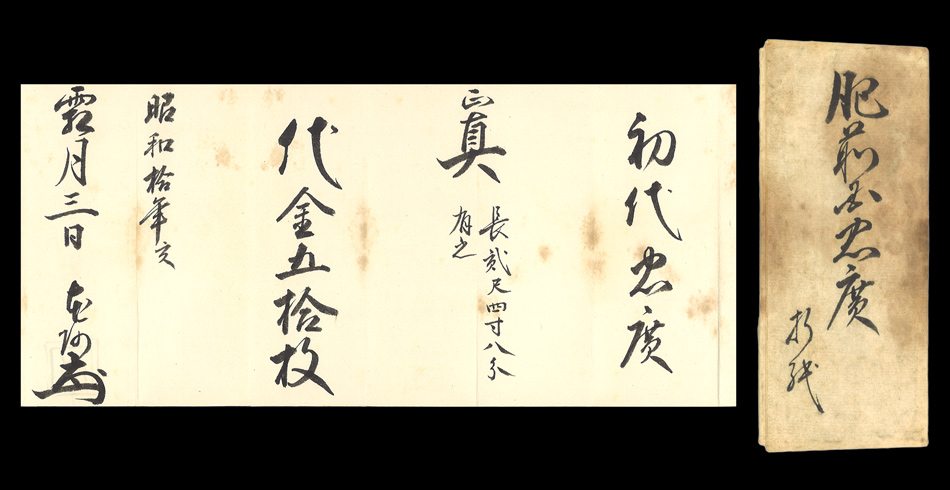 肥前国忠廣
折紙
初代忠廣
正真
長貳尺四寸八分
有之
代金五拾枚
昭和拾年亥
霜月三日 本阿